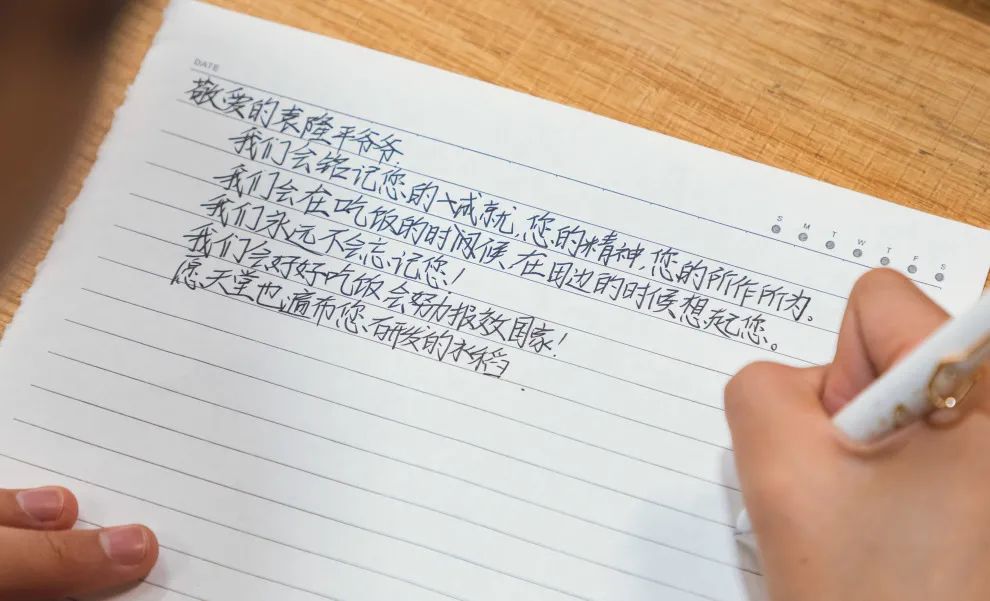 DATE
S M T W T F S
敬爱的袁隆平爷爷
我们会铭记您的成就,您的精神,您的所作所为。
我们会在吃饭的时间候,在田边的时候想起您。
我们永远不会忘记您!
我们会好好吃饭会好努力报效国家!
愿天堂也遍布您研发的水稻